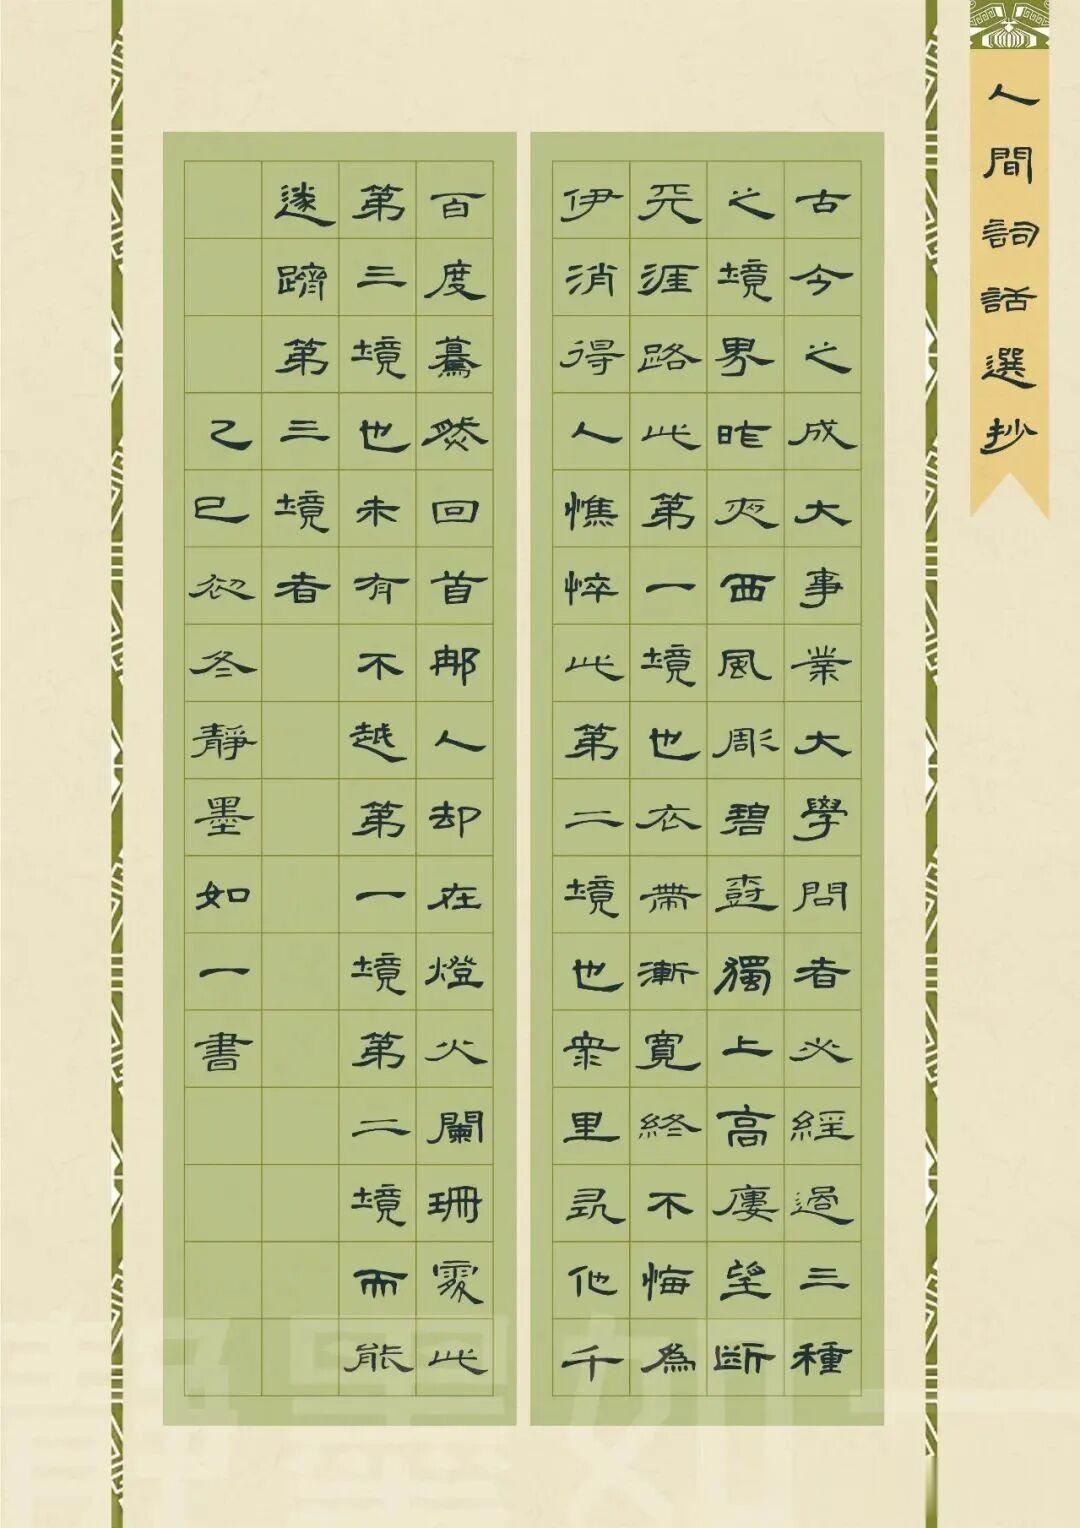 人間詞話選抄
古今之成大事業大學問者必經過三種
之境界昨夜西風彫碧樹獨上高樓望斷
天涯路此第一境也衣帶漸寬終不悔為
伊消得人憔悴此第二境也眾里尋他千
百度驀然回首那人却在燈火闌珊處此
第三境也未有不越第一境第二境而能
遂躋第三境者
乙巳初冬靜墨如一書
靜墨如一